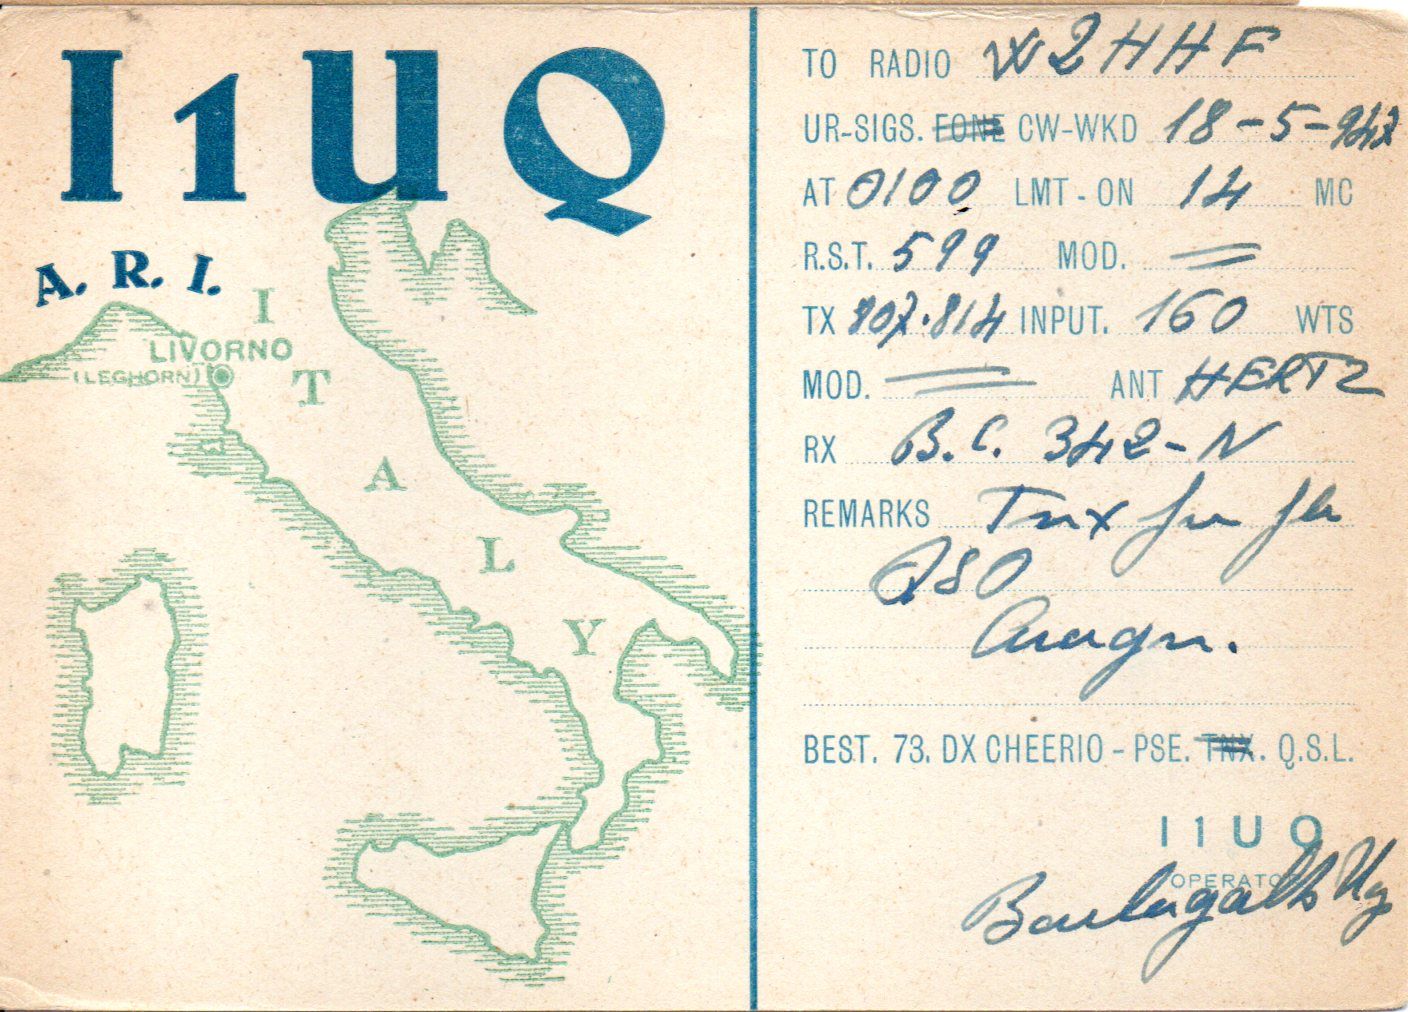 I1UQ
A. R. I.
ITALY
LIVORNO
(LEGHORN)
TO RADIO W2HHF
UR-SIGS. FONE CW-WKD 18-5-947
AT 0100 LMT - ON 14 MC
R.S.T. 599 MOD.
TX 807.814 INPUT. 160 WTS
MOD. ANT HERTZ
RX B.C. 342-N
REMARKS Tnx fr fb
QSO
BEST. 73. DX CHEERIO - PSE. TNX. Q.S.L.
I1UQ
OPERATOR